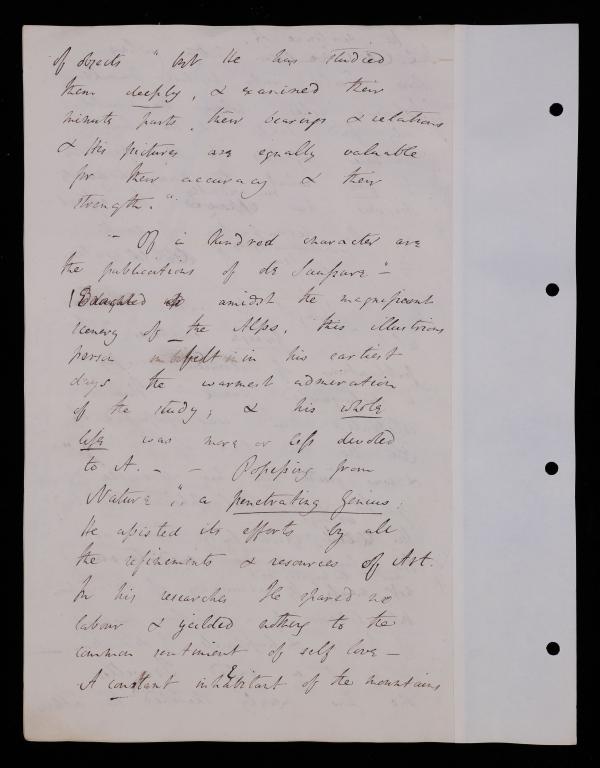 of objects " but He has studied
them deeply, & examined their
minute parts, their bearings & relations
& His pictures are equally valuable
for their accuracy & their
strength."
- Of a Kindred character are
the publications of de Saussure" -
amidst the magnificent
scenery of the Alps, this illustrious
person felt in his earliest
days the warmest admiration
of the study; & his whole
life was more or less devoted
to it. - - Possessing from
Nature ": a penetrating genius:
He assisted its efforts by all
the refinements & resources of Art.
In his researches He spared no
labour & yielded nothing to the
common sentiment of self love -
A constant inhabitant of the mountains